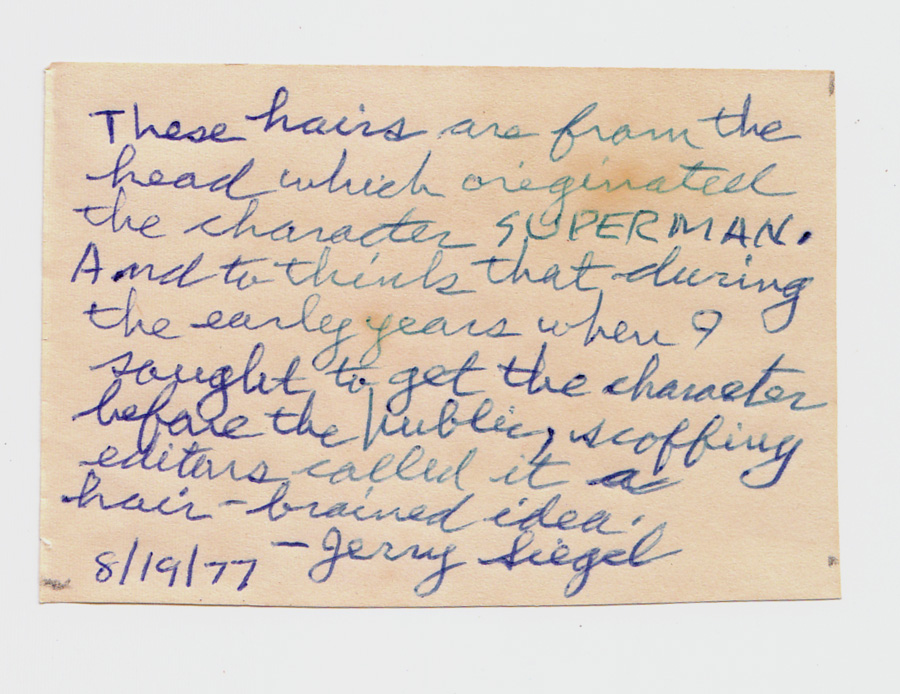 These hairs are from the
head which originated
the character SUPERMAN.
And to think that during
the early years when I
sought to get the character
before the public, scoffing
editors called it a
hair-brained idea.
—Jerry Siegel
8/19/77